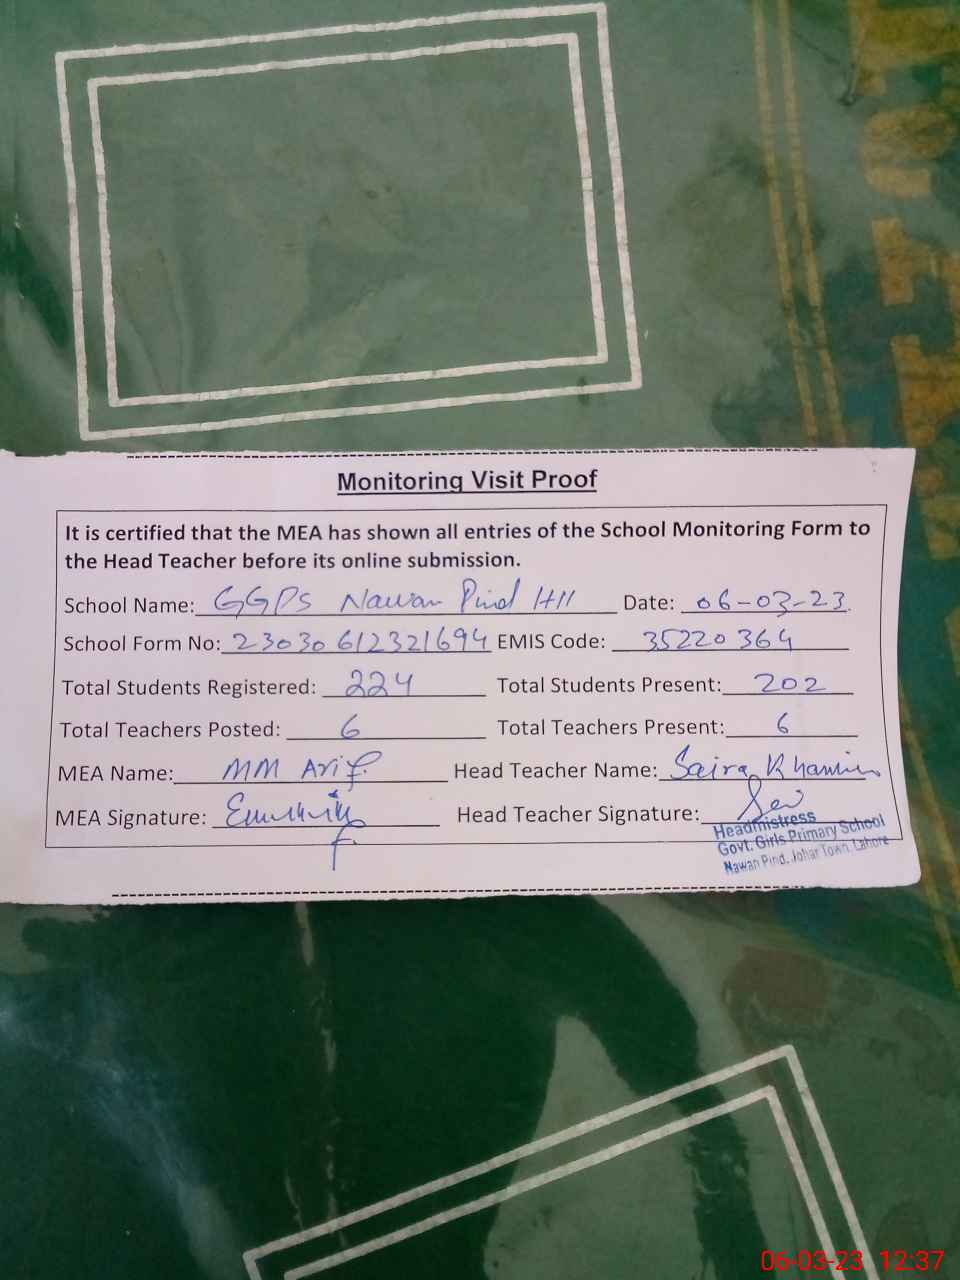 Monitoring Visit Proof
It is certified that the MEA has shown all entries of the School Monitoring Form to
the Head Teacher before its online submission.
School Name: GGPS Nawan Pind H11 Date: 06-03-23.
School Form No: 23030612321694 EMIS Code: 35220364
Total Students Registered: 224 Total Students Present: 202
Total Teachers Posted: 6 Total Teachers Present: 6
MEA Name: MM Arif. Head Teacher Name: Saira
MEA Signature: Head Teacher Signature:
Headmistress
Govt. Girls Primary School
Nawan Pind, Johar Town, Lahore
06-03-23 12:37